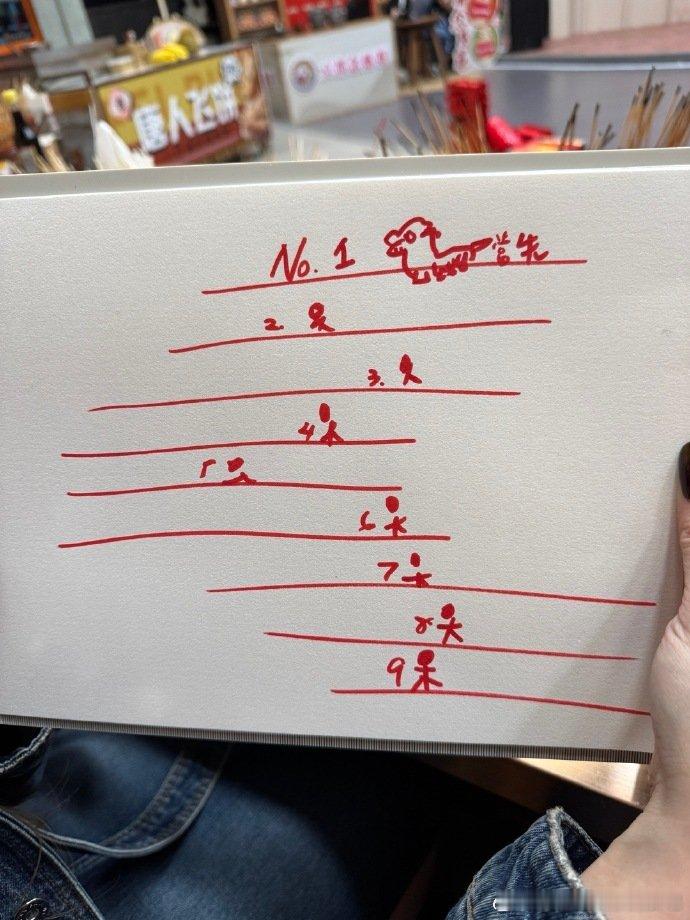 唐人飞饼
No. 1 当先
2.
3.
4
5
6
7
8
9